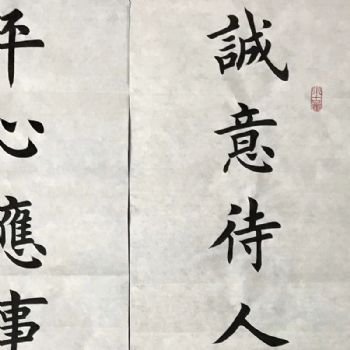 誠意待人
平心應事